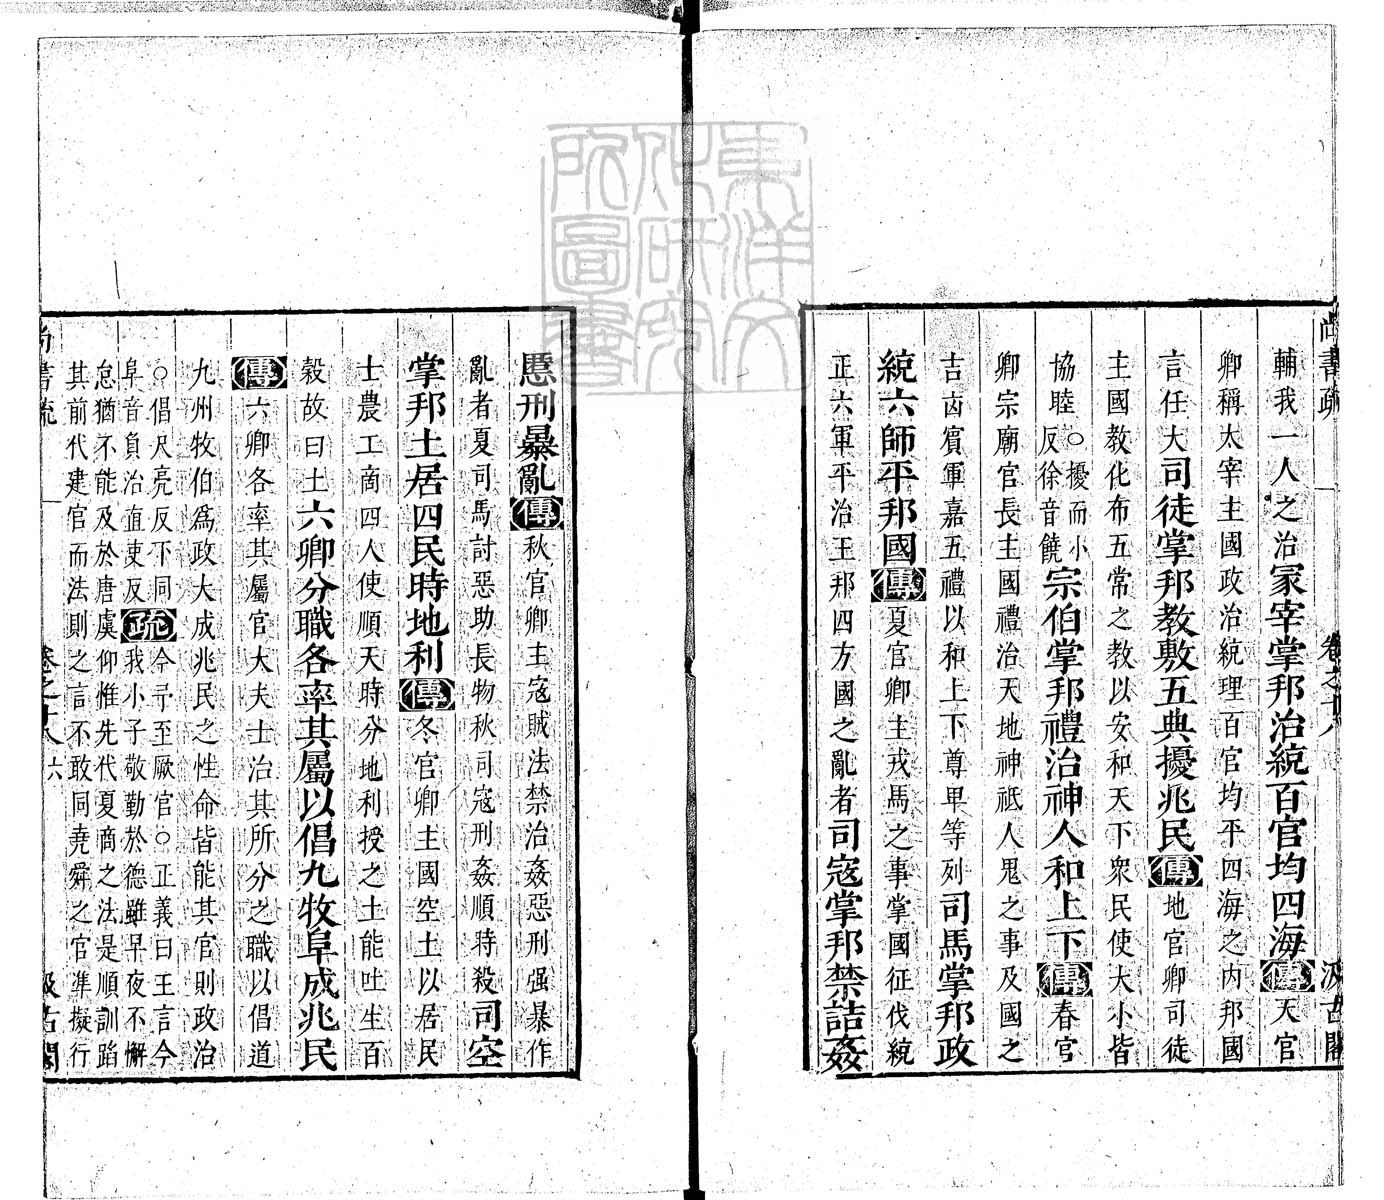 尚書疏 卷之十八 汲古閣
輔我一人之治冢宰掌邦治統百官均四海傳天官
卿稱太宰主國政治統理百官均平四海之内邦國
言任大司徒掌邦教敷五典擾兆民傳地官卿司徒
主國教化布五常之教以安和天下衆民使大小皆
協睦○擾而小反徐音饒宗伯掌邦禮治神人和上下傳春官
卿宗廟官長主國禮治天地神祇人鬼之事及國之
吉凶賓軍嘉五禮以和上下尊卑等列司馬掌邦政
統六師平邦國傳夏官卿主戎馬之事掌國征伐統
正六軍平治王邦四方國之亂者司寇掌邦禁詰姦
慝刑暴亂傳秋官卿主寇賊法禁治姦惡刑强暴作
亂者夏司馬討惡助長物秋司寇刑姦順時殺司空
掌邦土居四民時地利傳冬官卿主國空土以居民
士農工商四人使順天時分地利授之土能吐生百
穀故曰土六卿分職各率其屬以倡九牧阜成兆民
傳六卿各率其屬官大夫士治其所分之職以倡道
九州牧伯爲政大成兆民之性命皆能其官則政治
○倡尺亮反下同阜音負治直吏反疏今予至厥官○正義曰王言今我小子敬勤於德雖早夜不懈
怠猶不能及於唐虞仰惟先代夏商之法是順訓蹈
其前代建官而法則之言不敢同堯舜之官準擬行
尚書疏 卷之十八 六 汲古閣